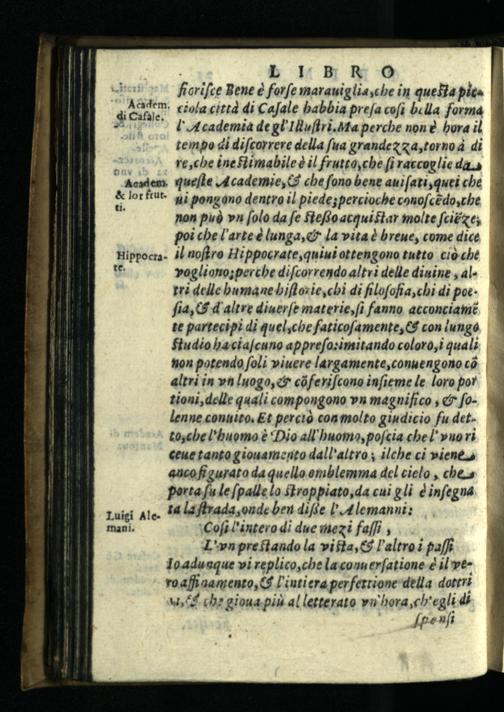 LIBRO
fiorisce Bene è forse marauiglia, che in questa pic-
ciola città di Casale habbia presa cosi bella forma
l'Academia degl'Illustri. Ma perche non è hora il
tempo di discorrere della sua grandezza, torno à di
re, che inestimabile è il frutto, che si raccoglie da
queste Academie, & che sono bene auisati, quei che
ui pongono dentro il piede; percioche conoscẽdo, che
non può vn solo da se steßo acquistar molte sciẽze,
poi che l'arte è lunga, & la vita è breue, come dice
il nostro Hippocrate, quiui ottengono tutto ciò che
vogliono; perche discorrendo altri delle diuine, al-
tri delle humane historie, chi di filosofia, chi di poe-
sia, & d'altre diuerse materie, si fanno acconciamẽ
te partecipi di quel, che faticosamente, & con lungo
studio ha ciascuno appreso: imitando coloro, i quali
non potendo soli viuere largamente, conuengono cõ
altri in vn luogo, & cõferiscono insieme le loro por
tioni, delle quali compongono vn magnifico, & so-
lenne conuito. Et perciò con molto giudicio fu det-
to, che l'huomo è Dio all'huomo, poscia che l'vno ri
ceue tanto giouamento dall'altro; ilche ci viene
anco figurato da quello emblemma del cielo, che
porta su le spalle lo stroppiato, da cui gli è insegna
ta la strada, onde ben diße l'Alemanni:
Cosi l'intero di due mezi fassi,
L'vn prestando la vista, & l'altro i passi
Io adunque vi replico, che la conuersatione è il ve-
ro affinamento, & l'intiera perfettione della dottri
na, & che gioua più al letterato vn'hora, ch'egli di
spensi
Academ.
di Casale.
Academ.
& lor frut-
ti.
Hippocra-
te.
Luigi Ale-
mani.